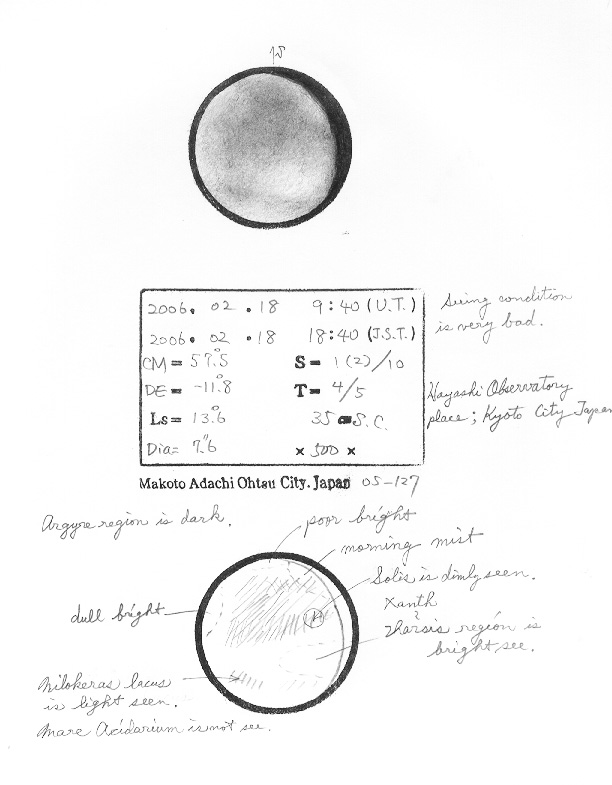 2006. 02 .18 9:40 (U.T.)
2006. 02 .18 18:40 (J.S.T.)
CM= 57°.5 S= 1(2)/10
DE= -11°.8 T= 4/5
Ls= 13°.6 35 S.C.
Dia= 7".6 × 500 ×
Seeing condition
is very bad.
Hayashi Observatory
place; Kyoto City Japan
Makoto Adachi Ohtsu City. Japan 05-127
Argyre region is dark.
poor bright
morning mist
Solis is dimly seen.
Xanth
dull bright
Tharsis region is
bright see.
Nilokeras lacus
is light seen.
Mare Acidarium is not see.